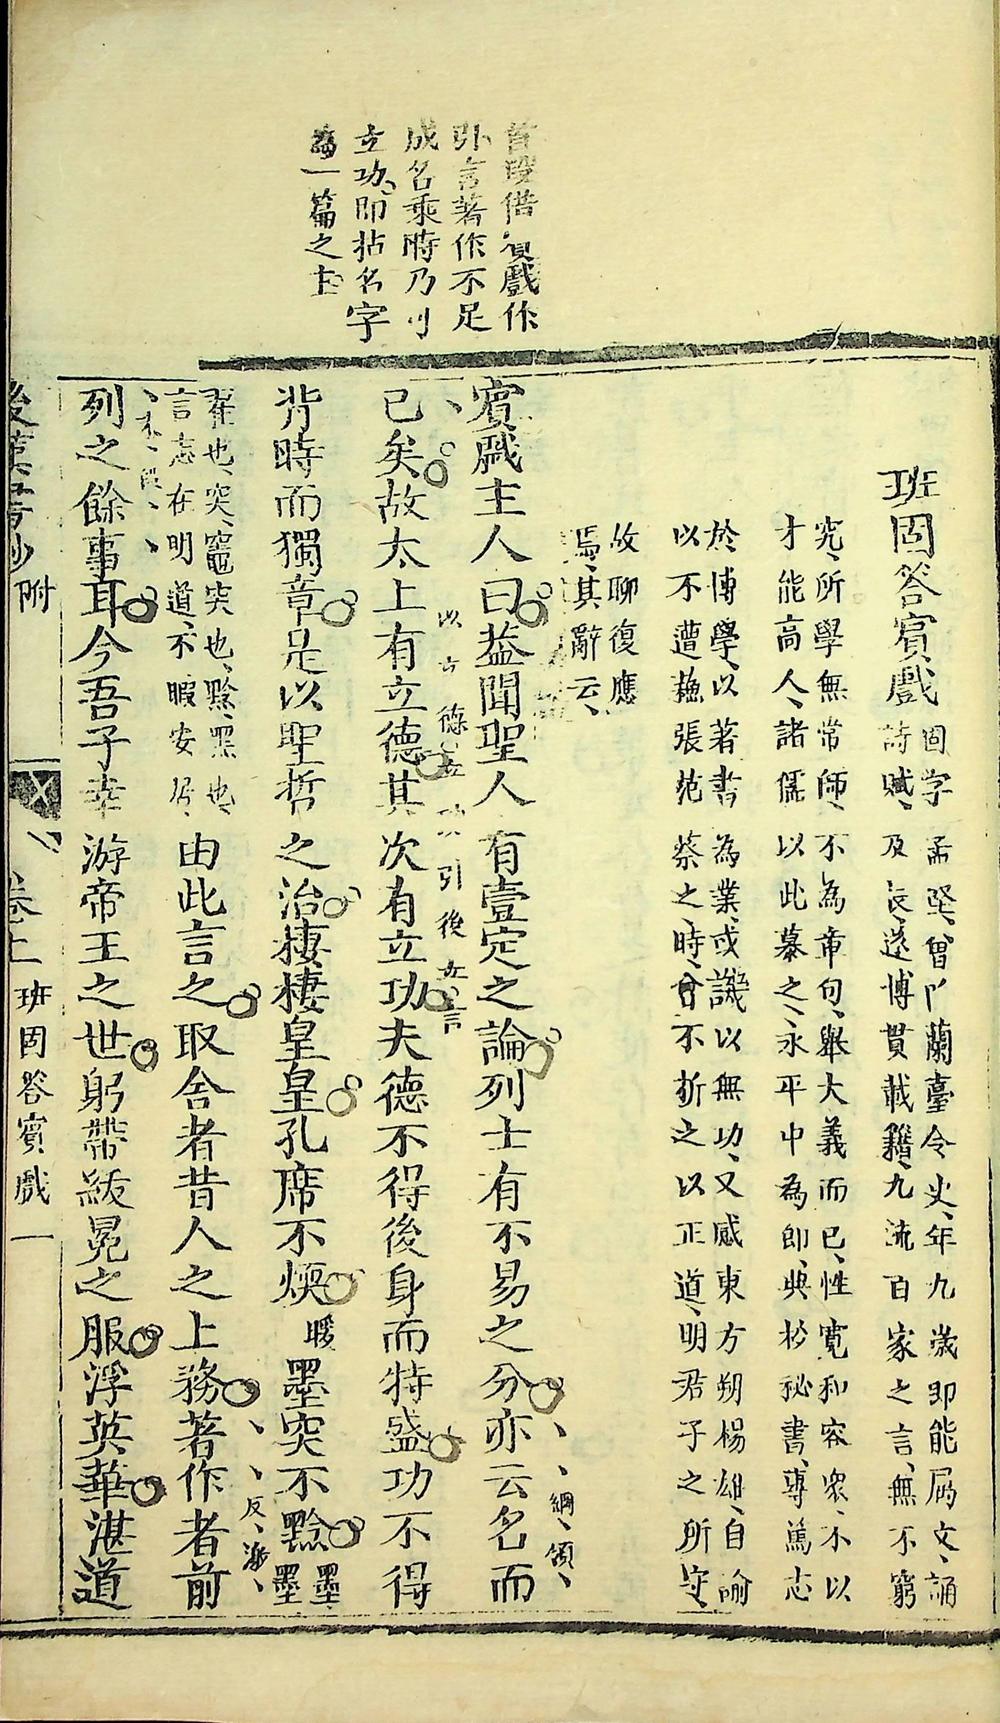 首段借賓戲作
引言著作不足
成名乘時乃可
立功即拈名字
為一篇之主
班固答賓戲
固字孟堅、曾 蘭臺令史、年九歲即能屬文、誦
詩賦、及長、遂博貫載籍、九流百家之言、無不窮
究、所學無常師、不為章句、舉大義而已、性寬和容衆、不以
才能高人、諸儒以此慕之、永平中為郎、典校秘書、專篤志
於博學、以著書為業、或譏以無功、又感東方朔楊雄、自諭
以不遭蘓張范蔡之、時、曾不折之以正道、明君子之所守、
故聊復應
焉、其辭云、
賓戲主人曰葢聞聖人有壹定之論列士有不易之分亦云名而
綱、領、
已矣故太上有立德其次有立功夫德不得後身而特盛功不得
以立德立功引後立言
背時而獨章是以聖哲之治棲棲皇皇孔席不煗暖墨突不黔墨墨
翟也、突、竈突也、黔、黑也、
言志在明道、不暇安居、
由此言之取舍者昔人之上務著作者前
反、激、
列之餘事耳今吾子幸游帝王之世躬帶紱冕之服浮英華湛道
後漢書鈔附
卷上
班固答賓戲
一